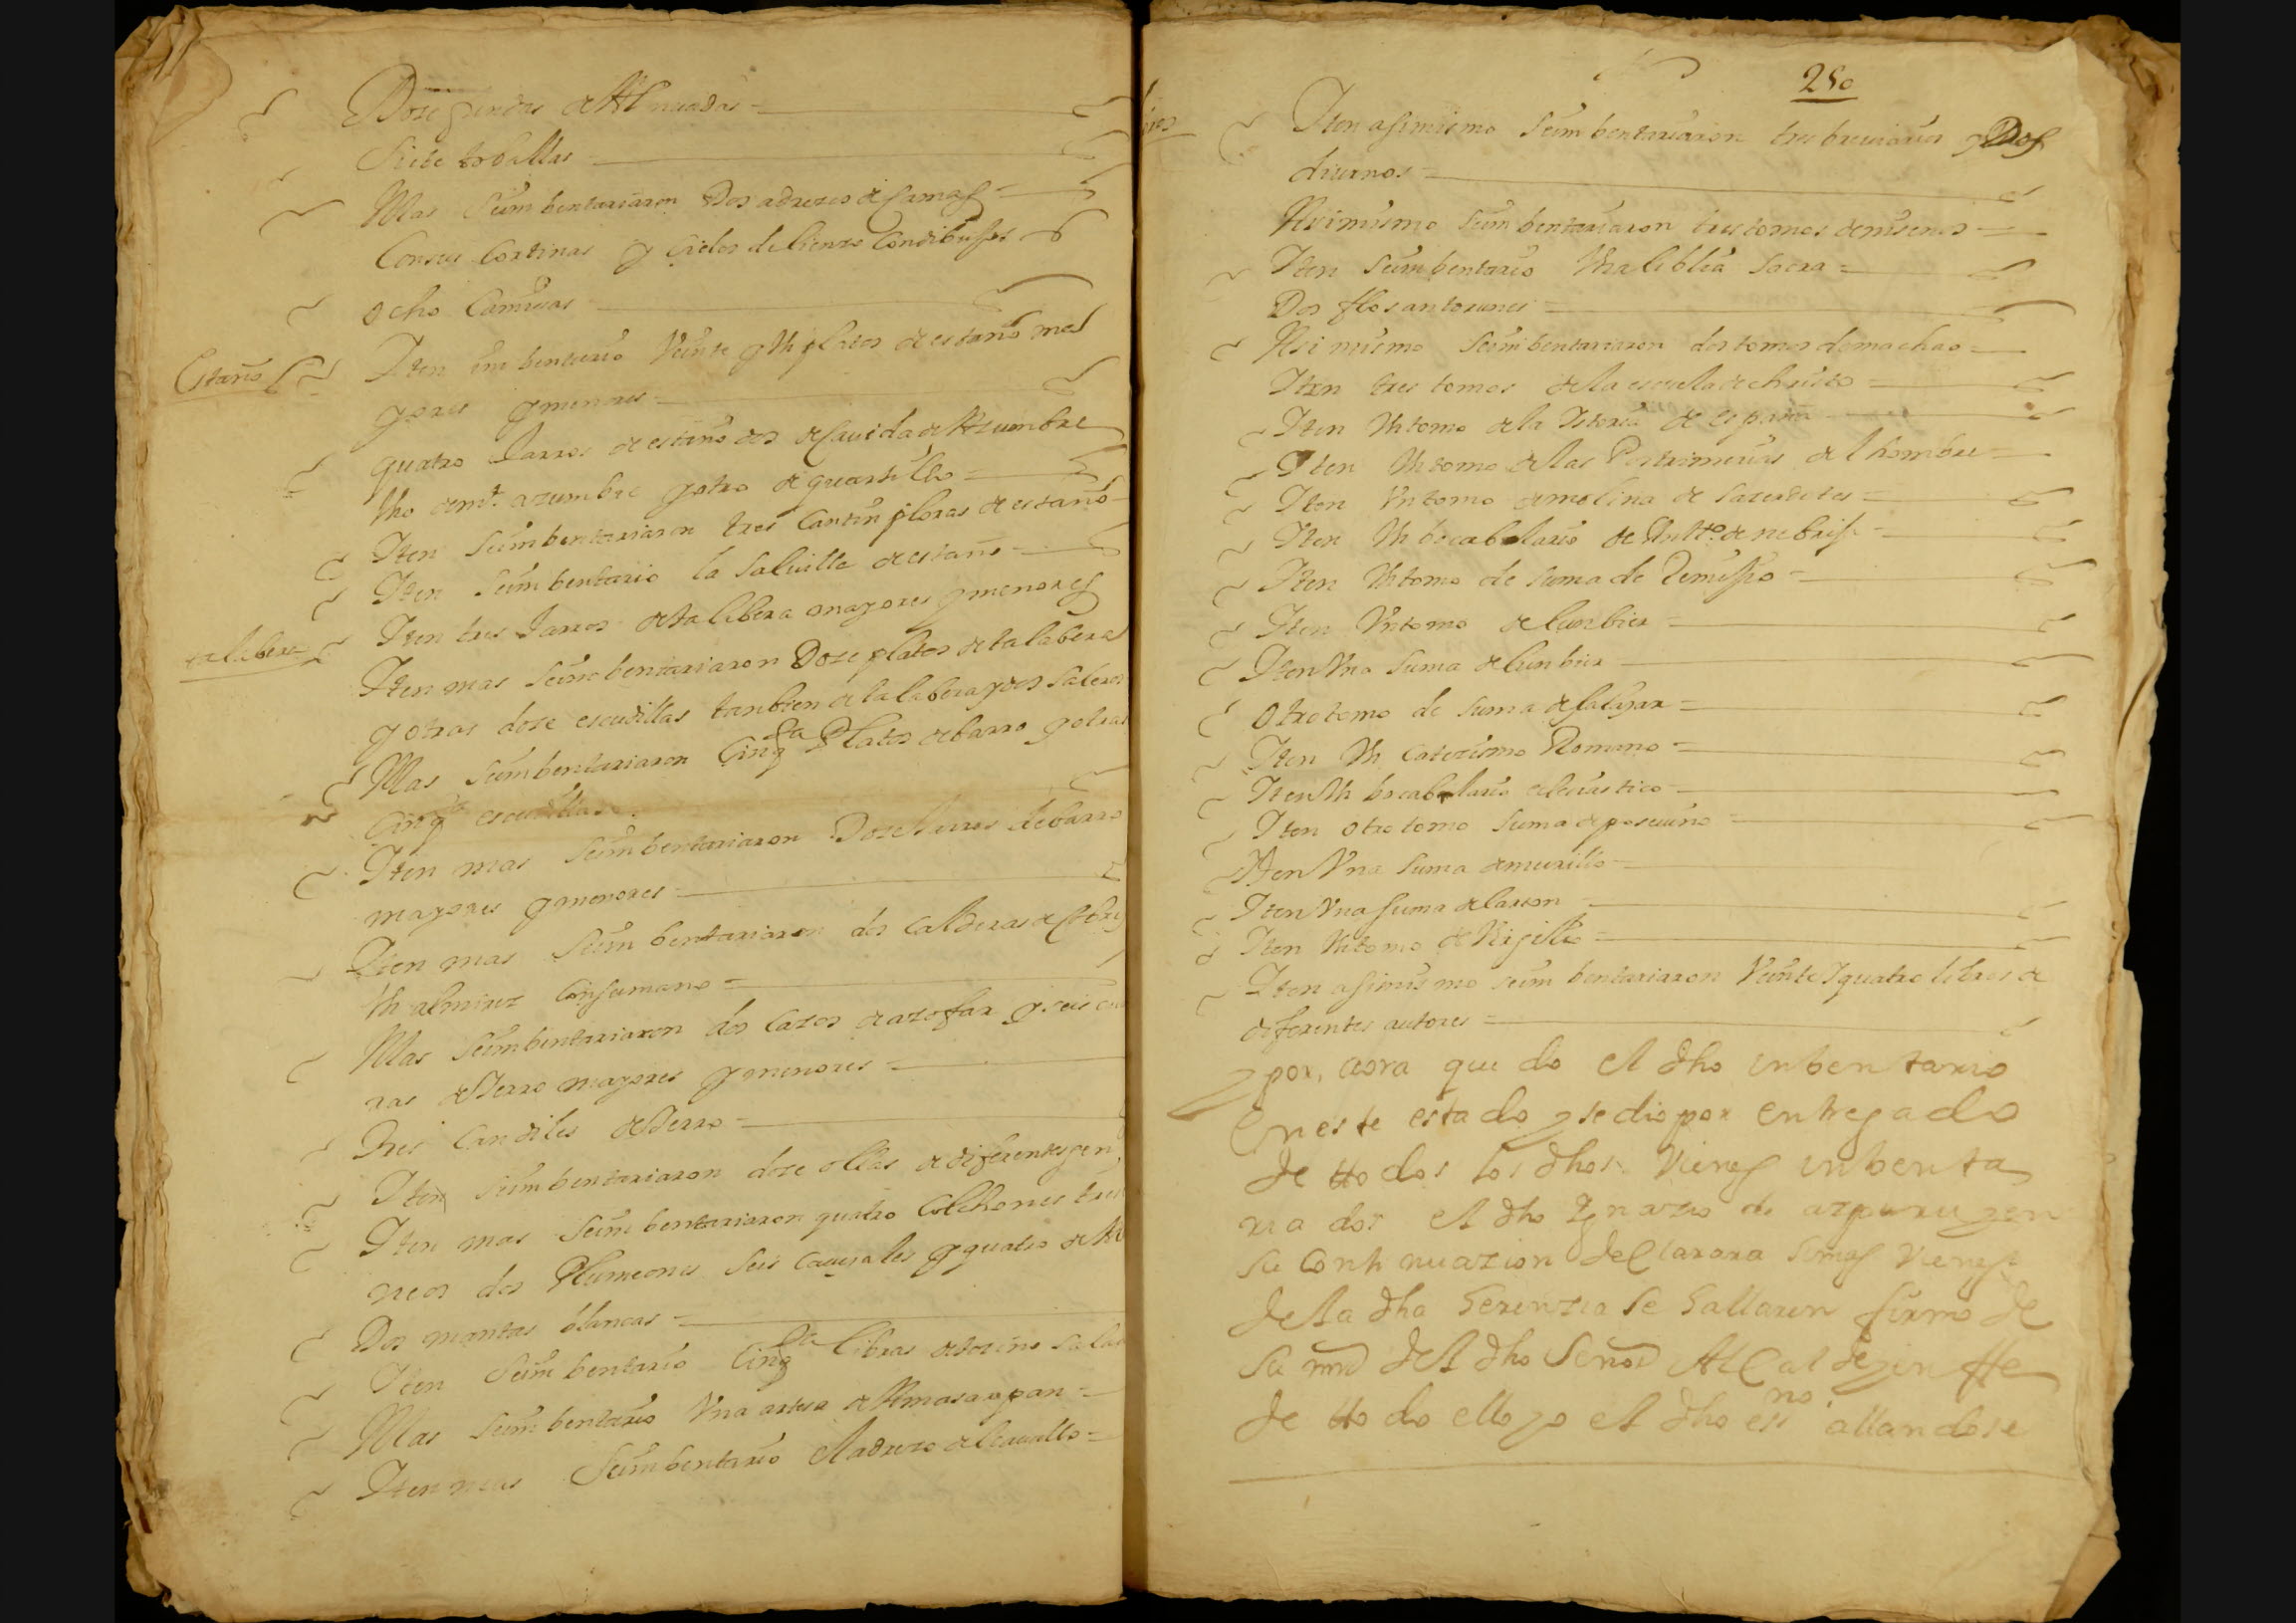 Doze fundas de Almuadas =
Siete toballas
Mas Seimbentariaron Dos adrezos de camas =
Con sus Cortinas y Cielos de lienzo Con dibujos
ocho Camisas
Estaño
Iten imbentario Veinte y Un platos de estaño ma
yores y menores =
quatro Jarros de estaño dos de Cauida de Azumbre
Vno de m.º azumbre y otro de quartillo =
Iten Seimbentariaron tres Cantinploras de estaño
Iten Seimbentario la Saluilla de estaño =
talabera
Iten tres Jarros de talabera mayores y menores
Iten mas Seimbentariaron Doze platos de talabera
y otras doze escudillas tanbien de talabera y dos Saleros
Mas Seimbentariaron Cinqta Platos de barro y otras
Cinqta escudillas
Iten mas Seimbentariaron Doze Jarros de barro
mayores y menores =
Iten mas Seimbentariaron dos Calderas de Cobre
Vn almirez Con su mano =
Mas Seimbentariaron dos Cazos de azofar y seis
ras de Yerro mayores y menores =
Tres Candiles de Yerro =
Iten Seimbentariaron doze ollas de diferentes gen
Iten mas Seimbentariaron quatro Colchones
neos dos Plumeones Seis Cauezales y quatro de
Dos mantas blancas =
Iten Seimbentario Cinqta libras de tozino Sala
Mas Seimbentario Vna artesa de Amasar pan =
Iten mas Seimbentario el adrezo de Cauallo =
250
Iten asimismo Seimbentariaron tres breuiarios y Dos
diurnos =
Asimismo Seimbentariaron tres tomos de niseno =
Iten Seimbentario Vna biblia Sacra =
Dos flos santorunes =
Asimismo Seimbentariaron dos tomos de machao =
Iten tres tomos de la escuela de christo =
Iten Vn tomo de la Istoria de españa
Iten Vn tomo de las Postrimerias del hombre =
Iten Vn tomo de molina de Sazerdotes =
Iten Vn bocabolario de Antto. de nebrija =
Iten Vn tomo de Suma de Remisio =
Iten Vn tomo de lunbier =
Iten Vna Suma de lunbier
Otro tomo de Suma de salazar =
Iten Vn Catezismo Romano =
Iten Vn bocabulario eclesiastico
Iten otro tomo Suma de poseuino =
Iten Vna Suma de murillo =
Iten Vna Suma de larson
Iten Vn tomo de Virjilio =
Iten asimismo seimbentariaron Veinte y quatro libros de
diferentes autores =
y por, aora que do el dho inbentario
en este estado y se dio por entregado
de ttodos los dhos Vienes inbenta
riados el dho Ignazio de azpuru y en
su Continuazion declarara si mas Vienes
de la dha herenzia se hallaren firmo de
su md del dho Señor Alcalde y en ffe
de ttodo ello yo el dho essno allandose